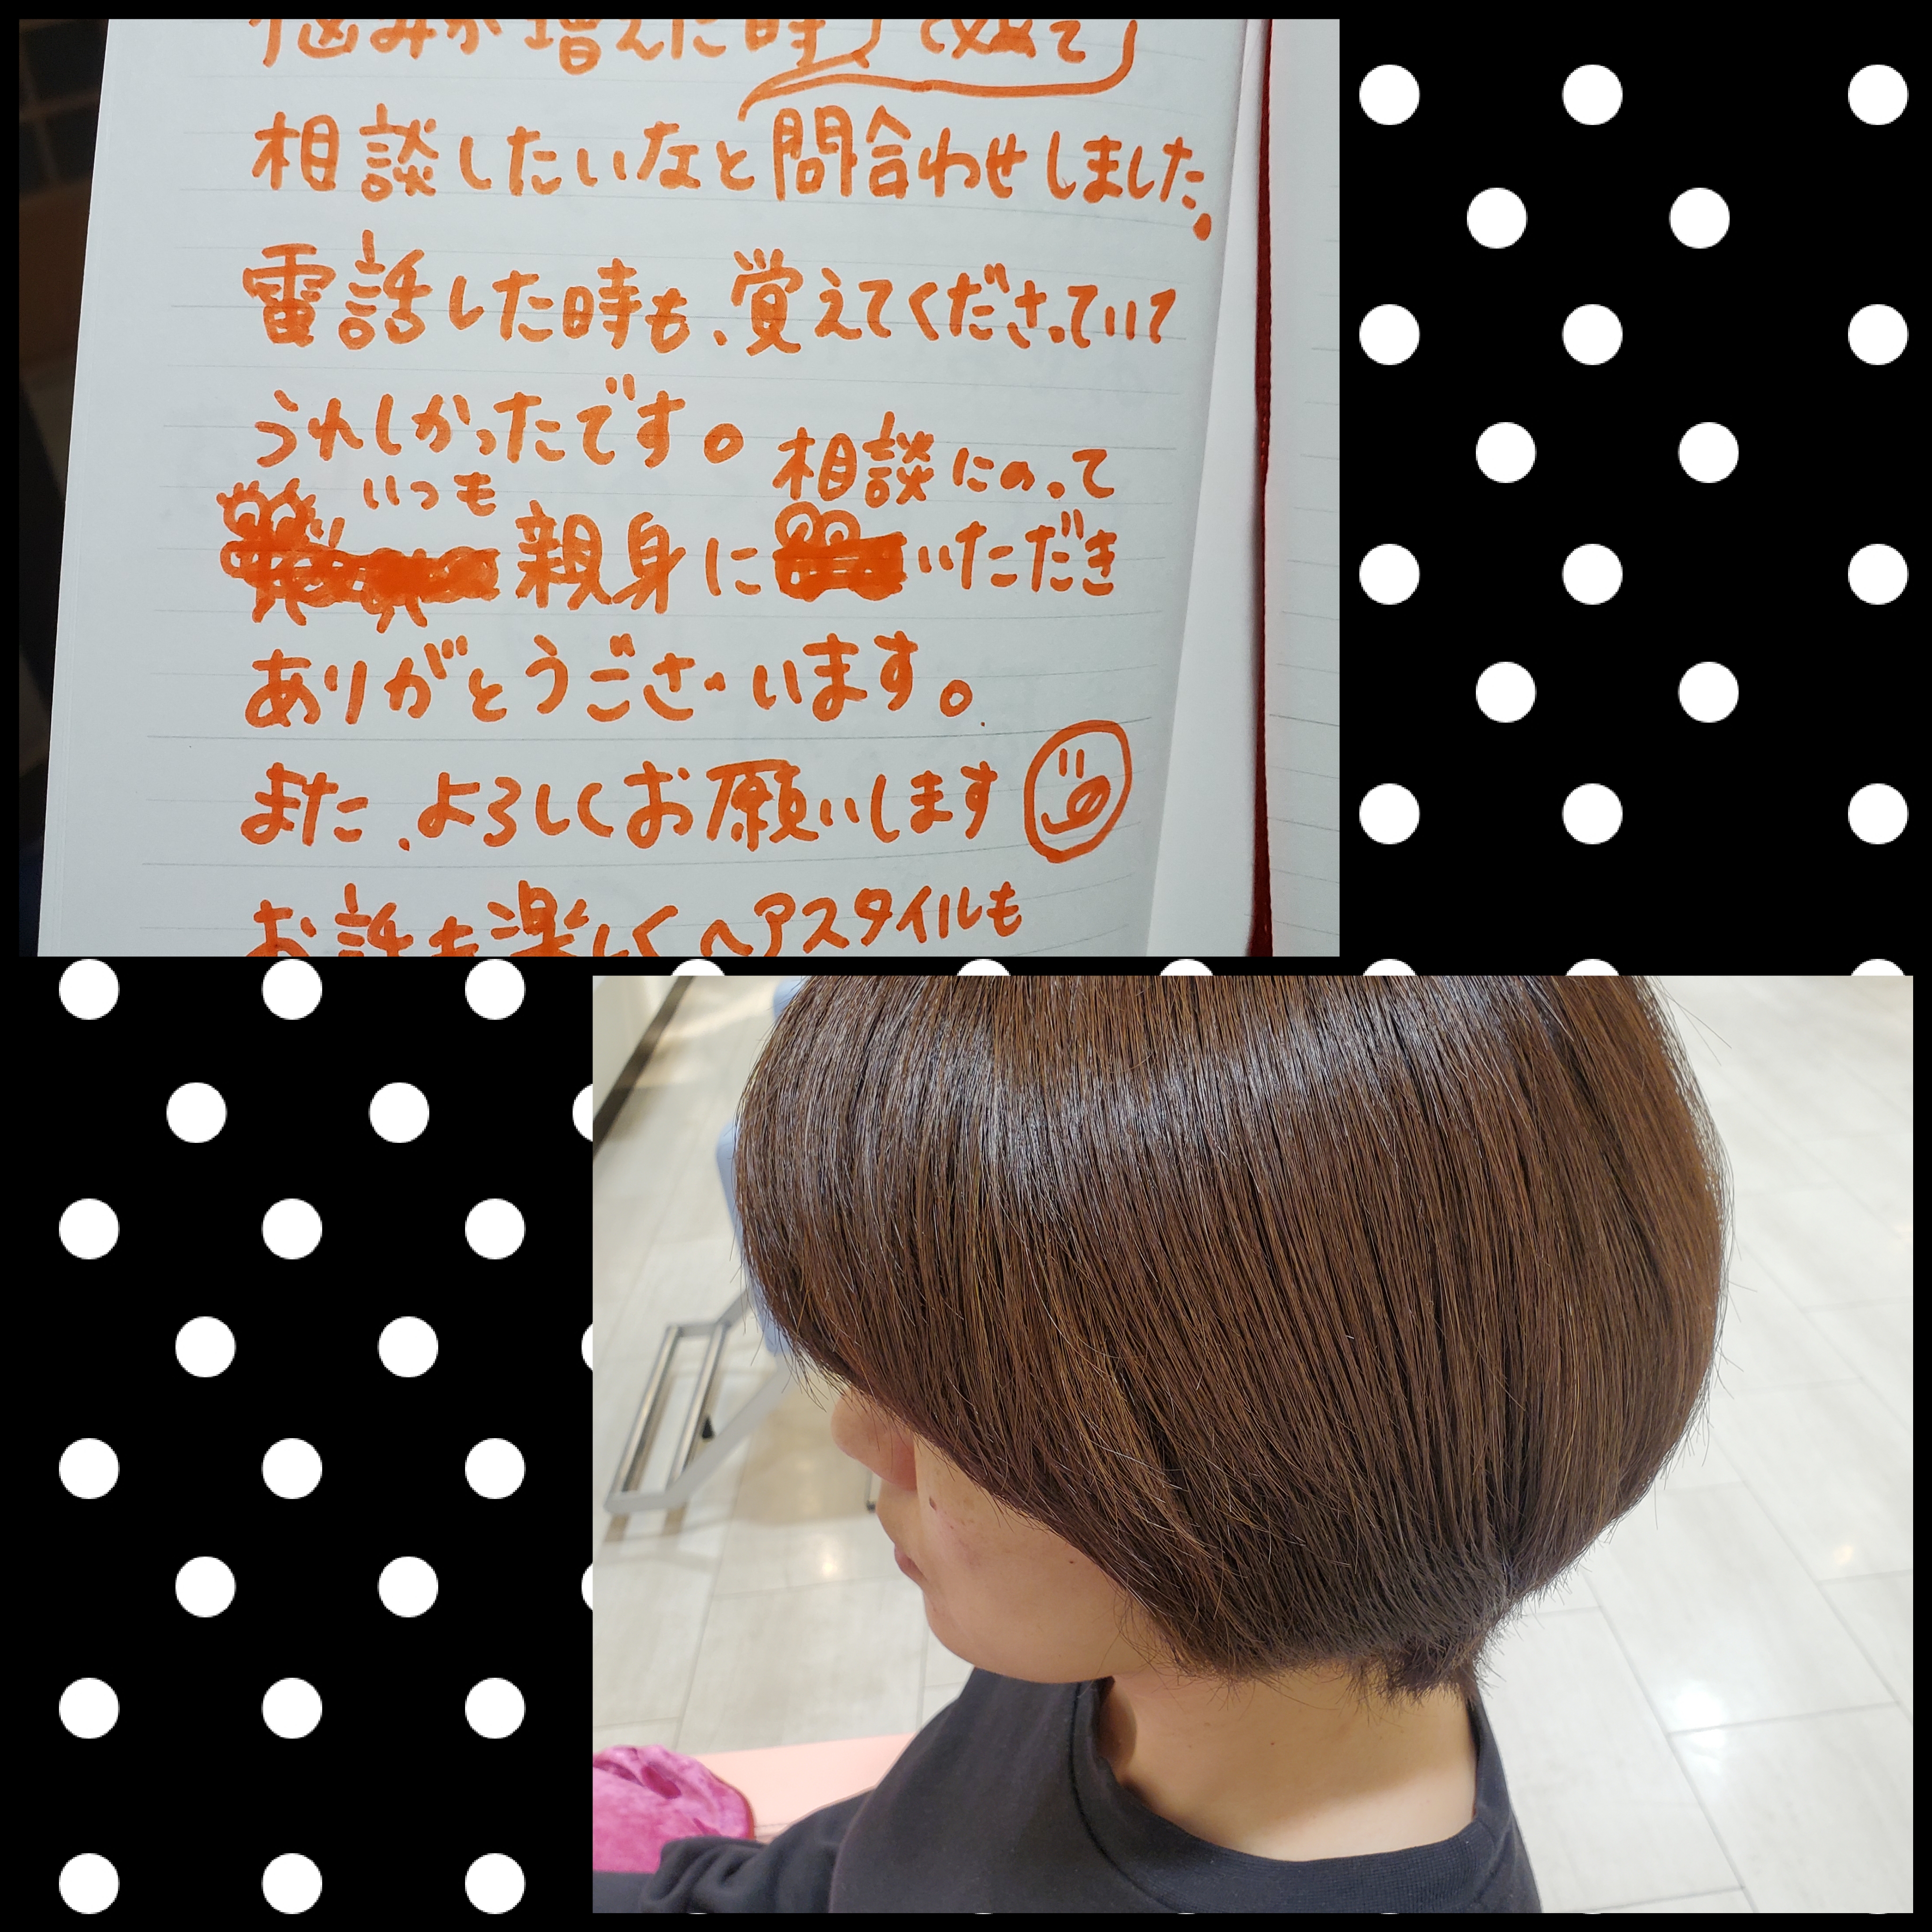 悩みが増えた時）で改めて
相談したいなと問合わせしました。
電話した時も、覚えてくださっていて
うれしかったです。
いつも親身に相談にのっていただき
ありがとうございます。
また、よろしくお願いします
お話も楽しくヘアスタイルも